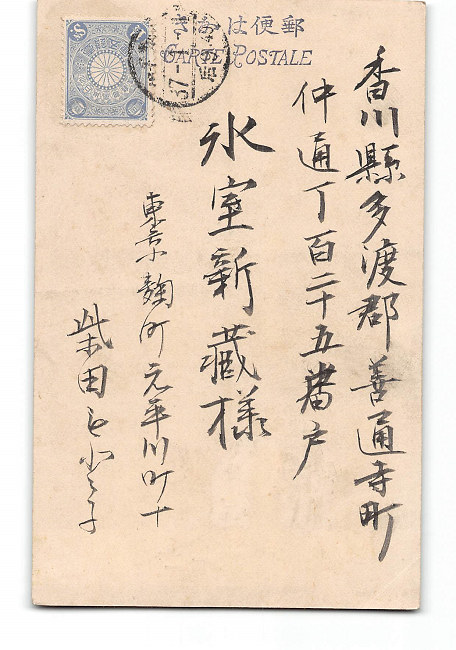 郵便はかき
CARTE POSTALE
香川縣多渡郡善通寺町
仲通丁百二十五番戸
氷室新藏様
東京麹町元平川町十
柴田